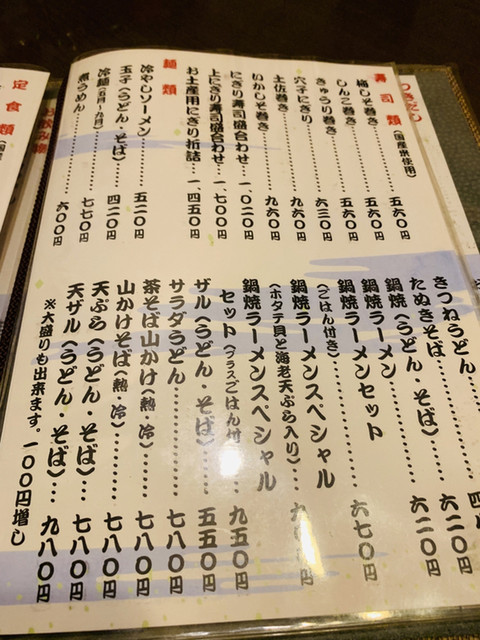 つきだし
寿司類（国産米使用）
梅しそ巻き……五六〇円
しんこ巻き……五六〇円
きゅうり巻き……五六〇円
穴子にぎり……六三〇円
土佐巻き……九六〇円
いかしそ巻き……九六〇円
にぎり寿司盛合わせ…一、〇二〇円
上にぎり寿司盛合わせ…一、七〇〇円
お土産用にぎり折詰…一、四五〇円
麺類
冷やしソーメン……五二〇円
玉子（うどん・そば）……四二〇円
冷麺（六月〜九月）……七七〇円
煮うめん……六〇〇円
きつねうどん……四
たぬきそば……六二〇円
鍋焼（うどん・そば）……六二〇円
鍋焼ラーメン
鍋焼ラーメンセット
（ごはん付き）……六七〇円
鍋焼ラーメンスペシャル
（ホタテ貝と海老天ぷら入り）…
鍋焼ラーメンスペシャル
セット（プラスごはん付）…九五〇円
ザル（うどん・そば）…五五〇円
サラダうどん……七八〇円
茶そば山かけ（熱・冷）……七八〇円
山かけそば（熱・冷）……七八〇円
天ぷら（うどん・そば）…七八〇円
天ザル（うどん・そば）…九八〇円
※大盛りも出来ます。一〇〇円増し
定食類
お飲み物